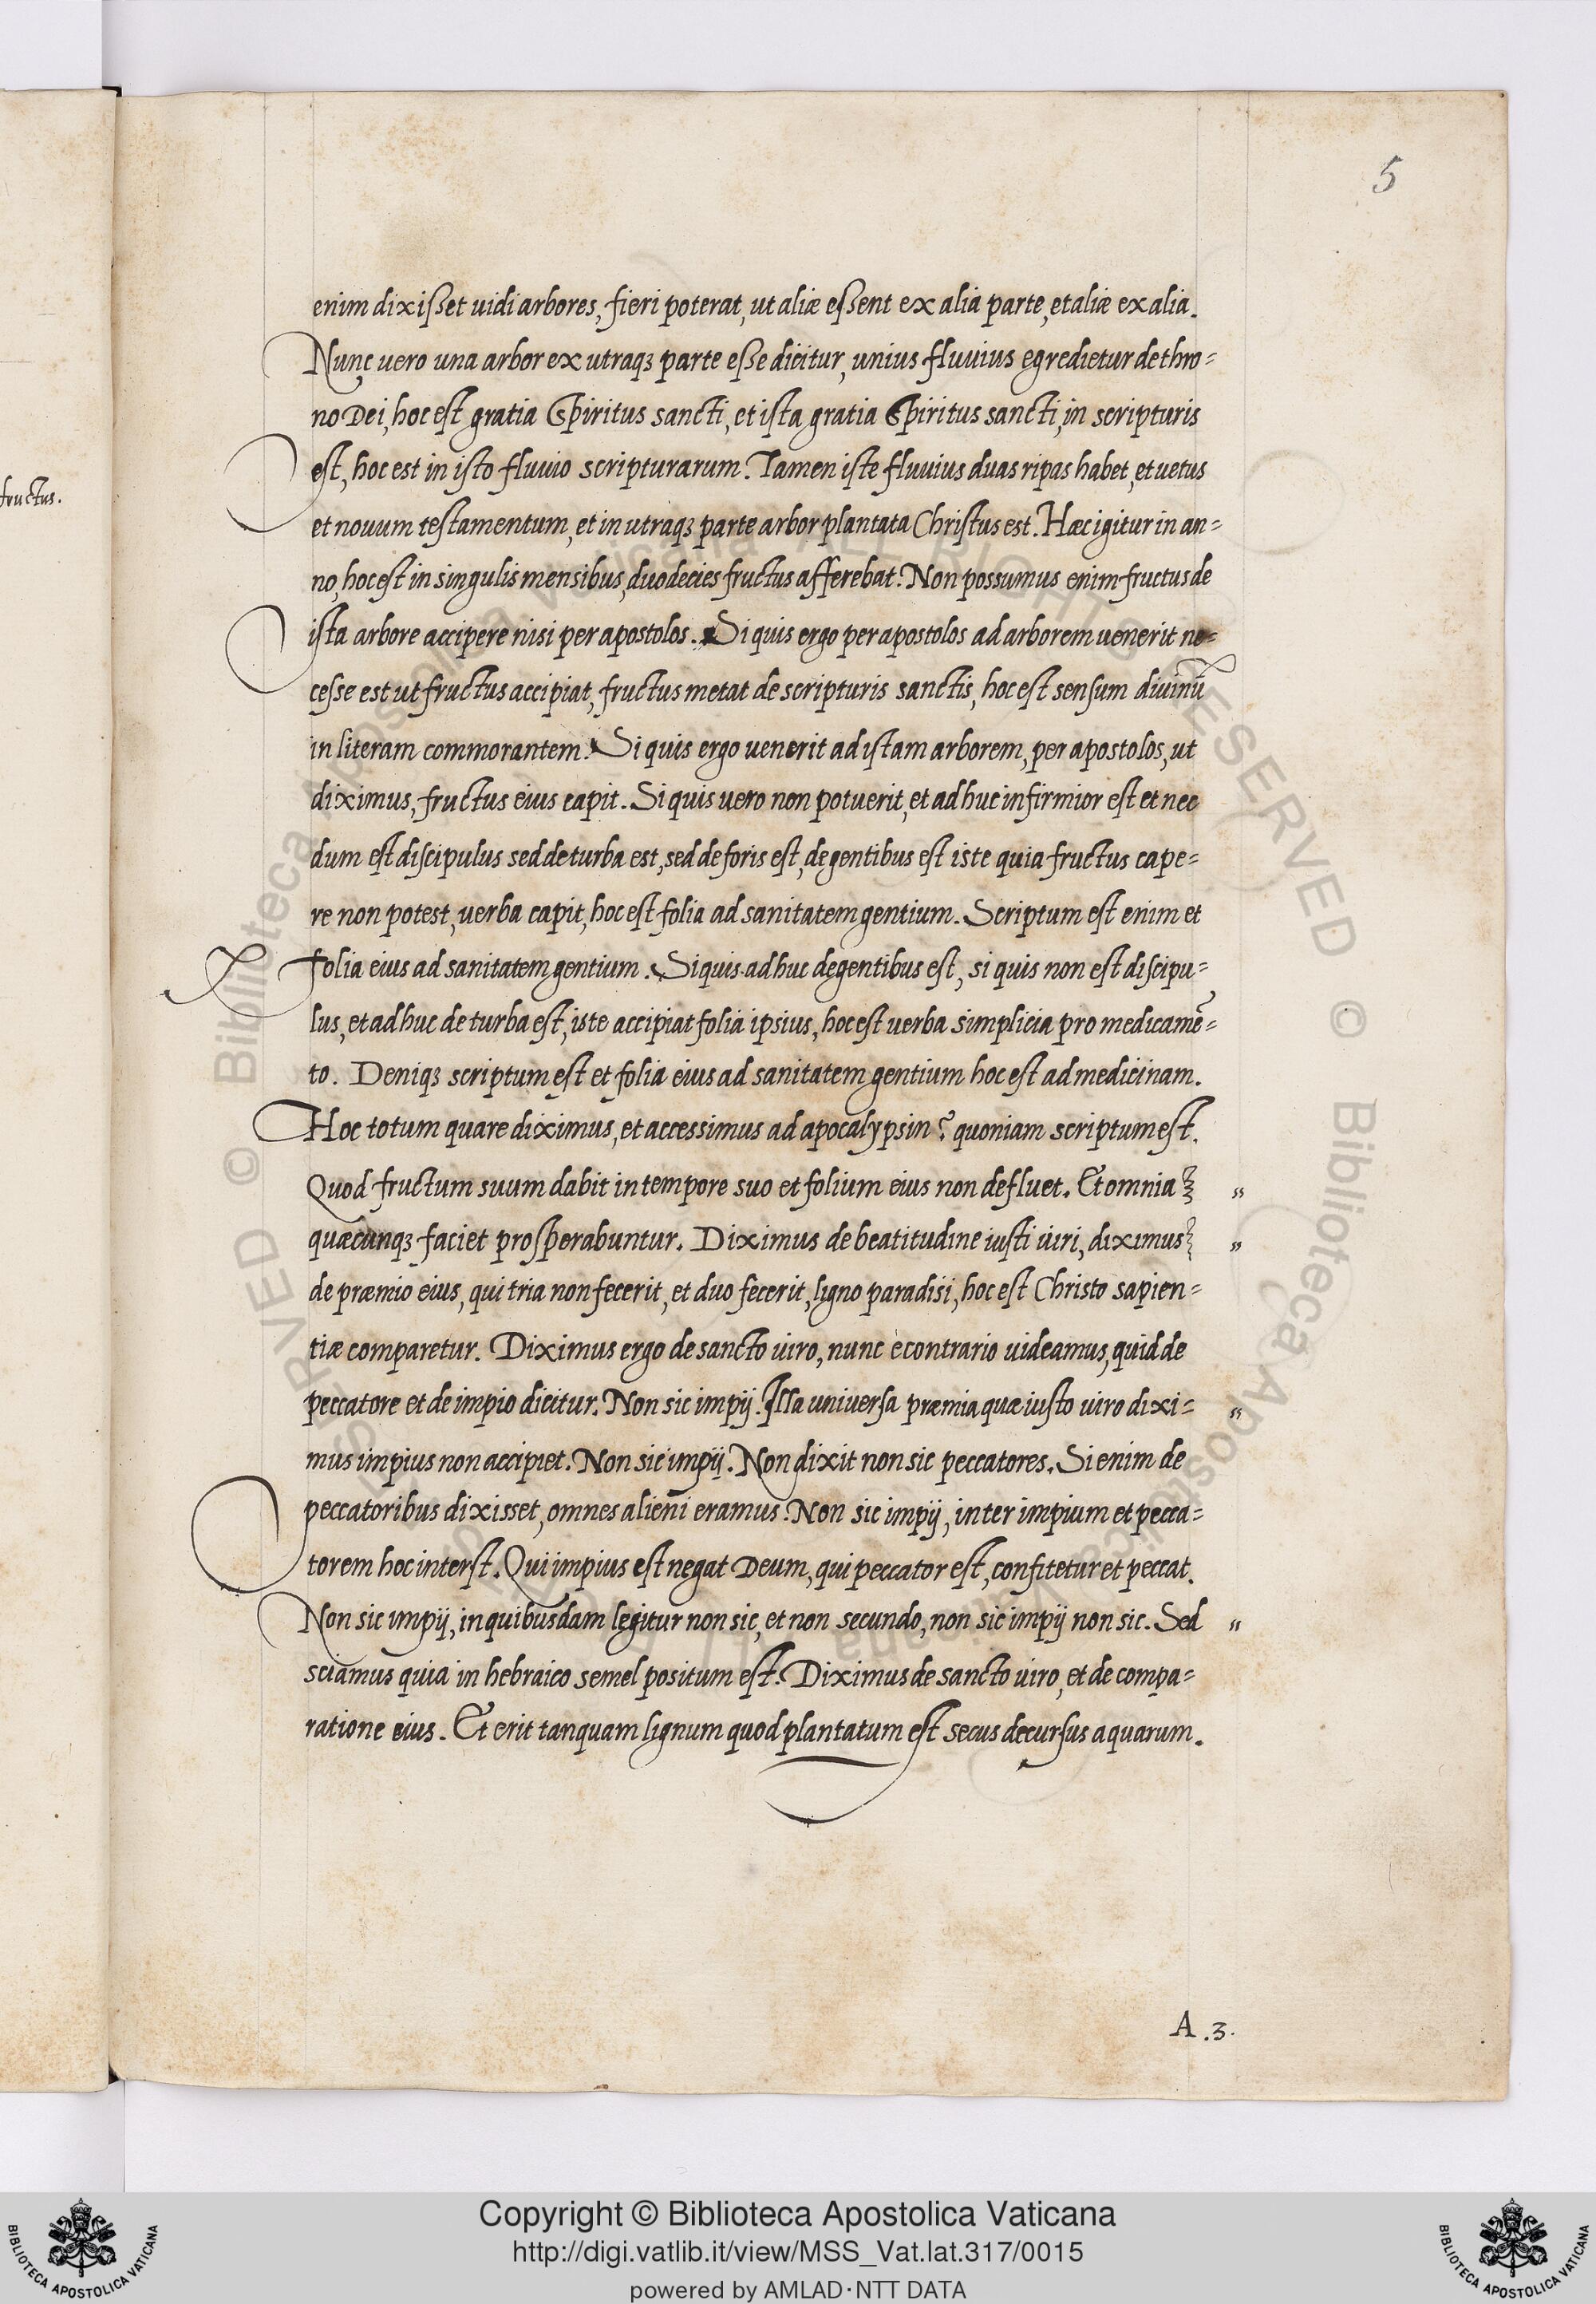 5
enim dixißet uidi arbores, fieri poterat, ut aliæ eßent ex alia parte, et aliæ ex alia.
Nunc uero una arbor ex utraqꝫ parte eße dicitur, unius fluuius egredietur de thro=
no Dei, hoc est gratia Spiritus sancti, et ista gratia Spiritus sancti, in scripturis
est, hoc est in isto fluuio scripturarum. Tamen iste fluuius duas ripas habet, et uetus
fructus.
et nouum testamentum, et in utraqꝫ parte arbor plantata Christus est. Hæc igitur in an=
no, hoc est in singulis mensibus, duodecies fructus afferebat. Non possumus enim fructus de
ista arbore accipere nisi per apostolos. Si quis ergo per apostolos ad arborem uenerit ne=
cesse est ut fructus accipiat, fructus metat de scripturis sanctis, hoc est sensum diuinū
in literam commorantem. Si quis ergo uenerit ad istam arborem, per apostolos, ut
diximus, fructus eius capit. Si quis uero non potuerit, et adhuc infirmior est et nec
dum est discipulus sed de turba est, sed de foris est, de gentibus est iste quia fructus cape=
re non potest, uerba capit, hoc est folia ad sanitatem gentium. Scriptum est enim et
folia eius ad sanitatem gentium. Si quis adhuc de gentibus est, si quis non est discipu=
lus, et adhuc de turba est, iste accipiat folia ipsius, hoc est uerba simplicia pro medicamē=
to. Deniqꝫ scriptum est et folia eius ad sanitatem gentium hoc est ad medicinam.
Hoc totum quare diximus, et accessimus ad apocalypsin? quoniam scriptum est.
Quod fructum suum dabit in tempore suo et folium eius non defluet. Et omnia "
quæcunqꝫ faciet prosperabuntur. Diximus de beatitudine iusti uiri, diximus "
de præmio eius, qui tria non fecerit, et duo fecerit, ligno paradisi, hoc est Christo sapien=
tiæ comparetur. Diximus ergo de sancto uiro, nunc è contrario uideamus, quid de
peccatore et de impio dicitur. Non sic impij. Illa universa præmia quæ iusto uiro dixi= "
mus impius non accipiet. Non sic impij. Non dixit non sic peccatores. Si enim de
peccatoribus dixisset, omnes alieni eramus. Non sic impij, inter impium et pecca=
torem hoc interst. Qui impius est negat Deum, qui peccator est, confitetur et peccat.
Non sic impij, in quibusdam legitur non sic, et non secundo, non sic impij non sic. Sed "
sciamus quia in hebraico semel positum est. Diximus de sancto uiro, et de compa=
ratione eius. Et erit tanquam lignum quod plantatum est secus decursus aquarum.
A.3.
Copyright © Biblioteca Apostolica Vaticana
http://digi.vatlib.it/view/MSS_Vat.lat.317/0015
powered by AMLAD·NTT DATA
BIBLIOTECA APOSTOLICA VATICANA
BIBLIOTECA APOSTOLICA VATICANA